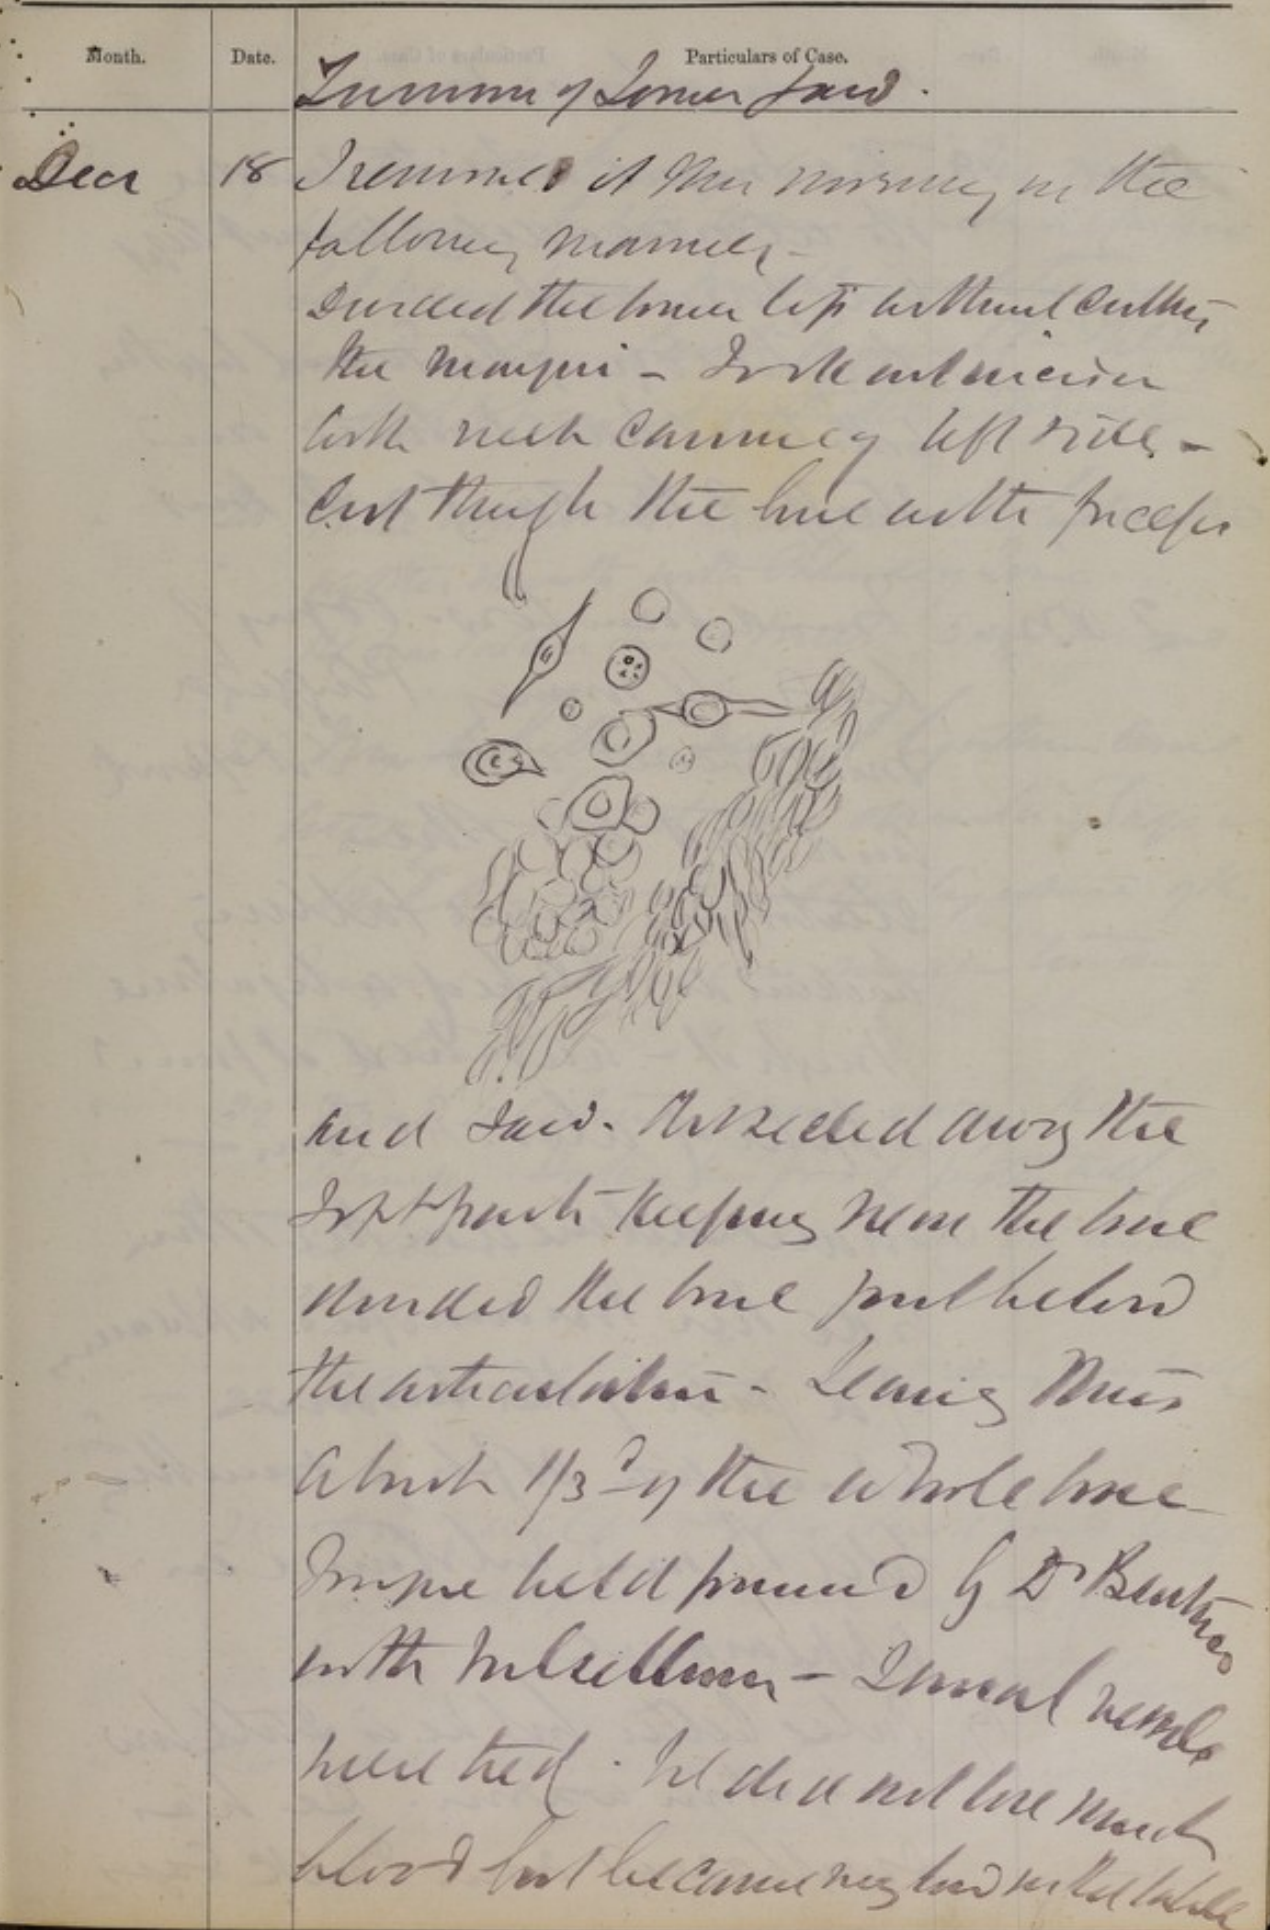 Month. Date. Particulars of Case.
Tumour of Lower Jaw.
Decr 18 I removed it this morning in the
following manner -
Divided the lower lip without cutting
the margin - Took out incisor
tooth next canine of left side -
Cut through the bone with forceps
and saw. Dissected away the
soft parts keeping near the bone
divided the bone just below
the articulation - leaving thus
about 1/3d of the whole bone
Tongue held forward by Dr
with vulsellum - Several vessels
were tied. He did not lose much
blood but became very low on the table